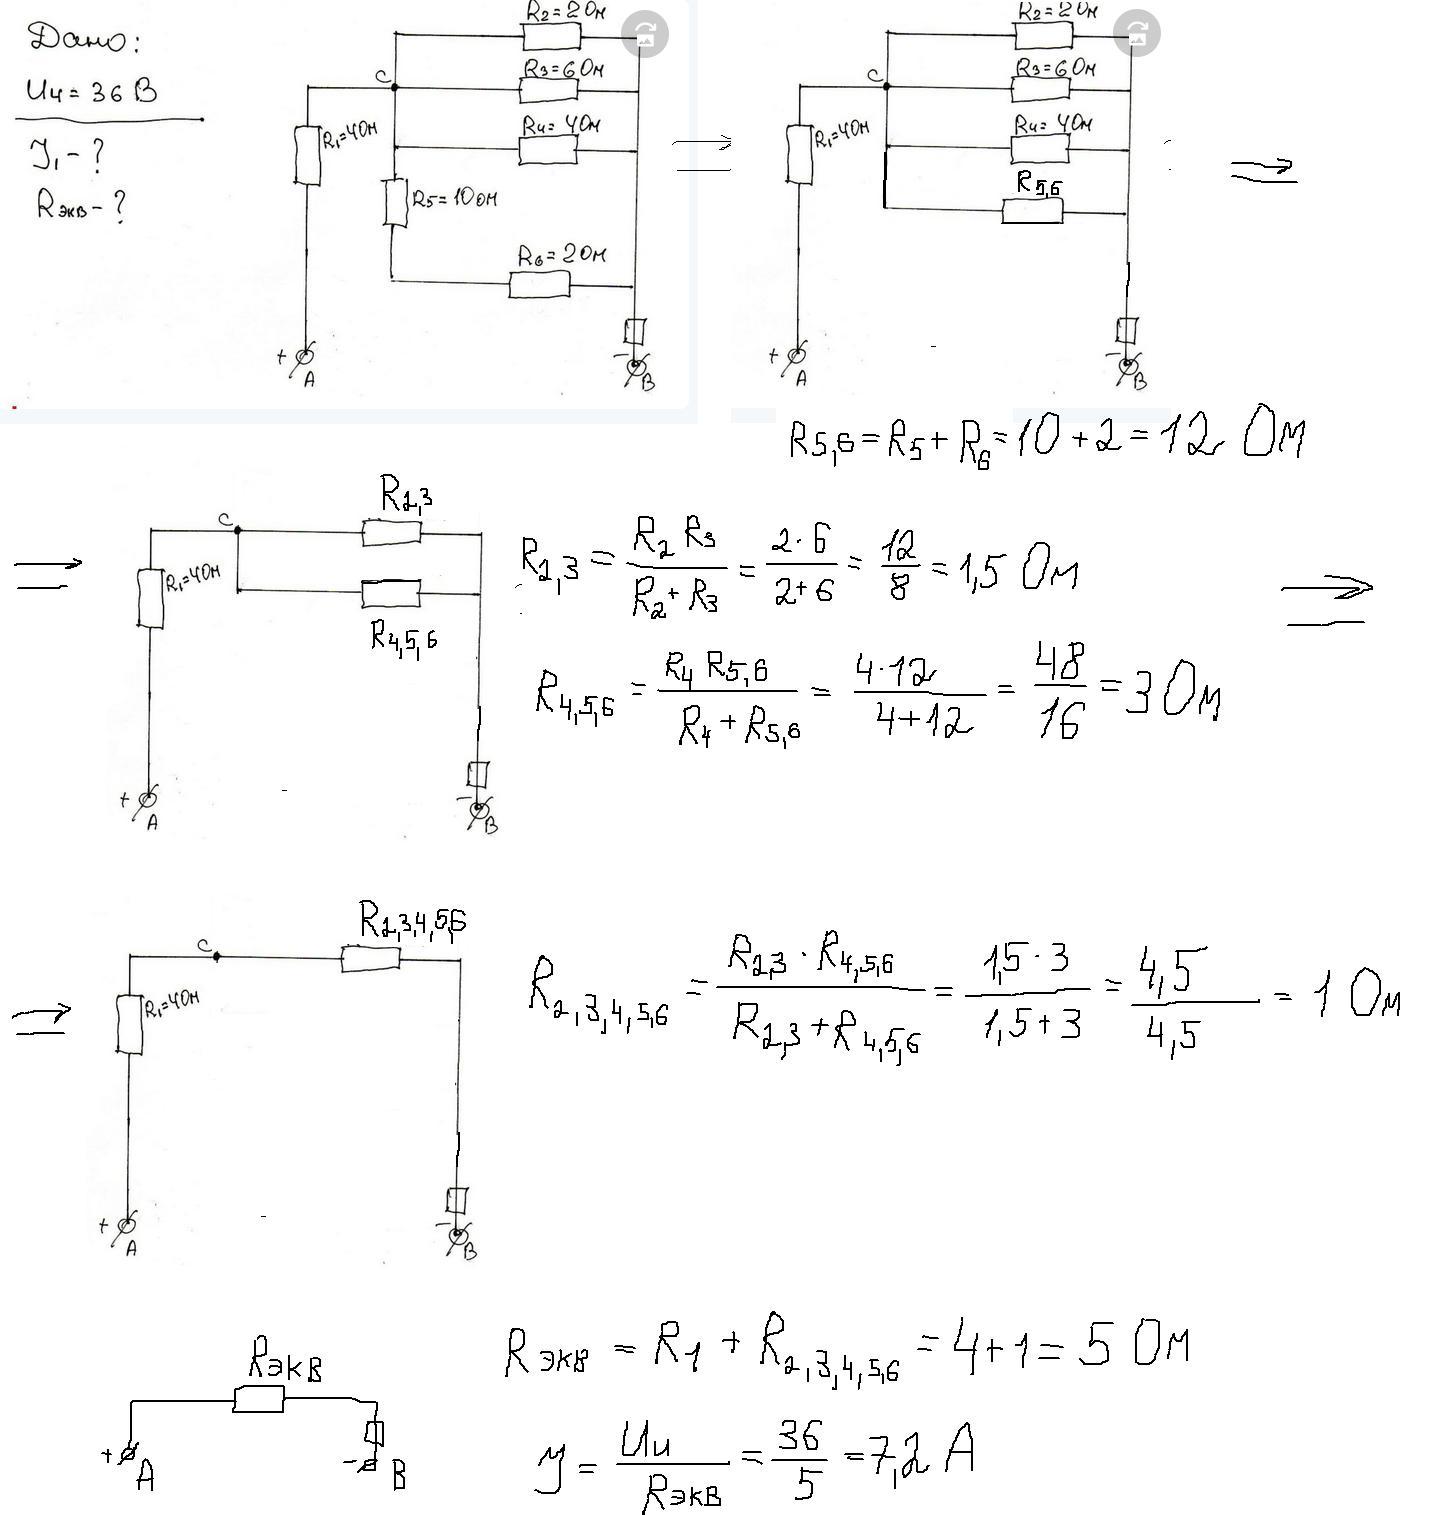 Дано:
U4 = 36 В
J1 - ?
Rэкв - ?
R2=2Ом
R3=6Ом
C
R1=4Ом
R4=4Ом
R5=10Ом
R6=2Ом
+
A
-
B
⇒
R2=2Ом
R3=6Ом
C
R1=4Ом
R4=4Ом
R5,6
+
A
-
B
⇒
R5,6 = R5 + R6 = 10 + 2 = 12 Ом
⇒
R2,3
C
R1=4Ом
R4,5,6
+
A
-
B
R2,3 = R2 R3 / R2 + R3 = 2·6 / 2+6 = 12 / 8 = 1,5 Ом
⇒
R4,5,6 = R4 R5,6 / R4 + R5,6 = 4·12 / 4+12 = 48 / 16 = 3 Ом
⇒
R2,3,4,5,6
C
R1=4Ом
+
A
-
B
R2,3,4,5,6 = R2,3 · R4,5,6 / R2,3 + R4,5,6 = 1,5·3 / 1,5+3 = 4,5 / 4,5 = 1 Ом
Rэкв
+
A
-
B
Rэкв = R1 + R2,3,4,5,6 = 4+1 = 5 Ом
У = Uи / Rэкв = 36 / 5 = 7,2 А